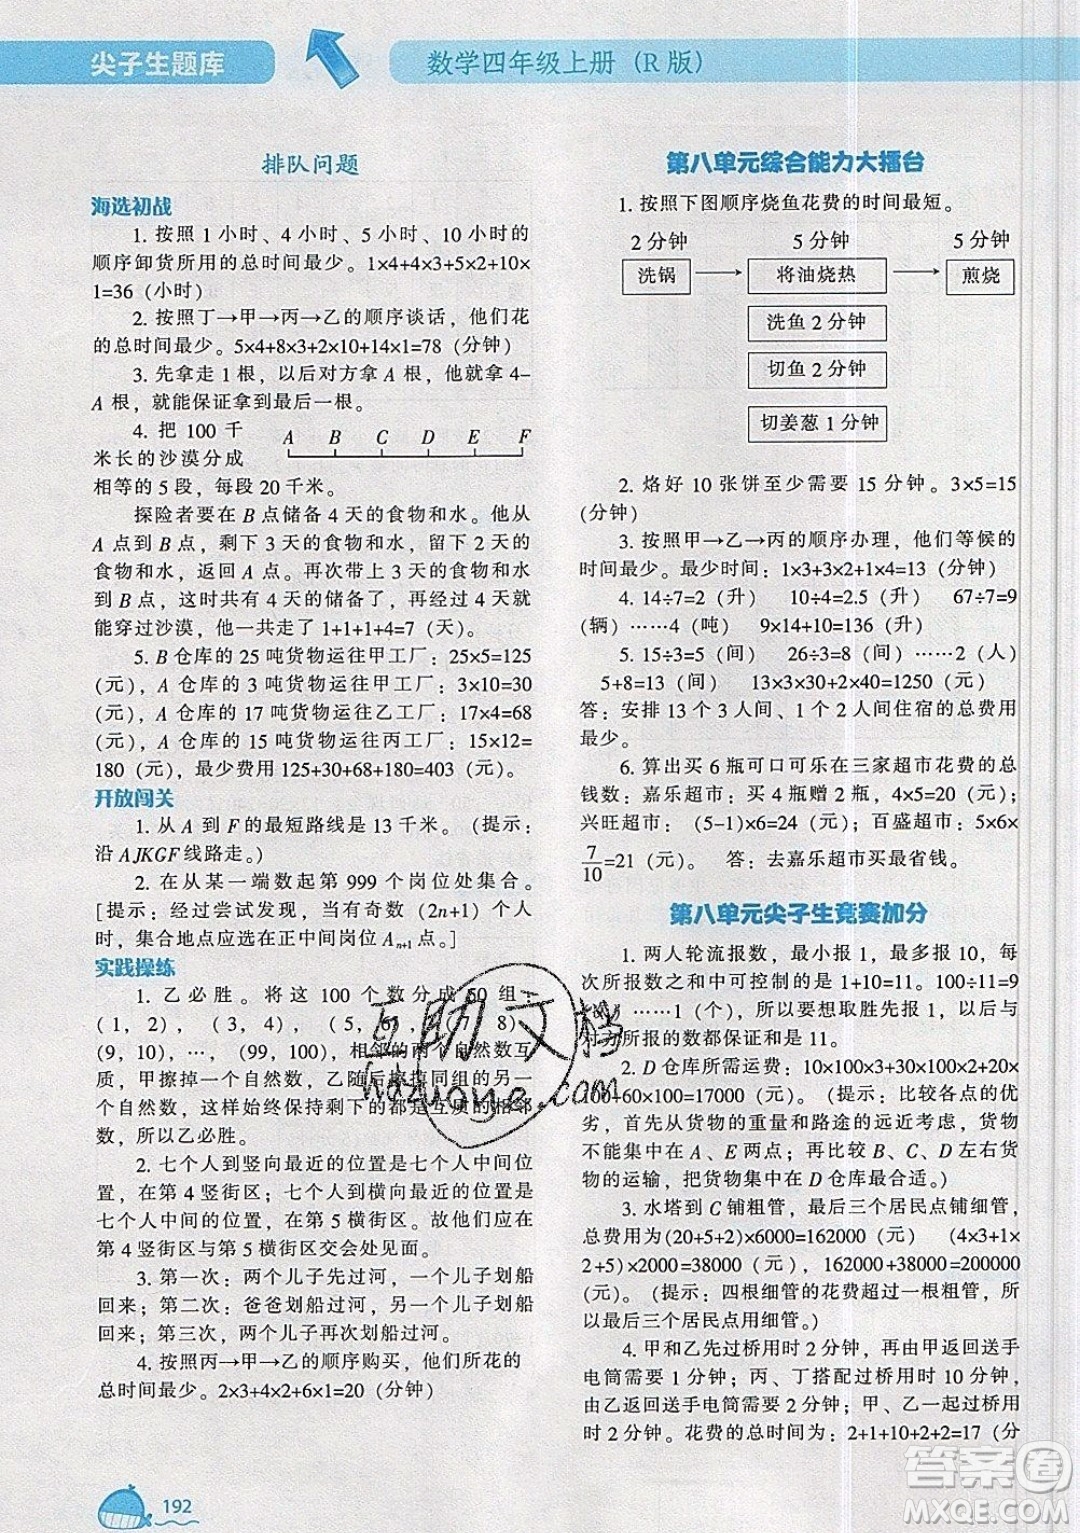 尖子生题库
数学四年级上册（R版）
排队问题
海选初战
1. 按照 1 小时、4 小时、5 小时、10 小时的
顺序卸货所用的总时间最少。1×4+4×3+5×2+10×
1=36（小时）
2. 按照丁→甲→丙→乙的顺序谈话，他们花
的总时间最少。5×4+8×3+2×10+14×1=78（分钟）
3. 先拿走 1 根，以后对方拿 A 根，他就拿 4-
A 根，就能保证拿到最后一根。
4. 把 100 千
米长的沙漠分成
A B C D E F
相等的 5 段，每段 20 千米。
探险者要在 B 点储备 4 天的食物和水。他从
A 点到 B 点，剩下 3 天的食物和水，留下 2 天的
食物和水，返回 A 点。再次带上 3 天的食物和水
到 B 点，这时共有 4 天的储备了，再经过 4 天就
能穿过沙漠，他一共走了 1+1+1+4=7（天）。
5. B 仓库的 25 吨货物运往甲工厂：25×5=125
（元），A 仓库的 3 吨货物运往甲工厂：3×10=30
（元），A 仓库的 17 吨货物运往乙工厂：17×4=68
（元），A 仓库的 15 吨货物运往丙工厂：15×12=
180（元），最少费用 125+30+68+180=403（元）。
开放闯关
1. 从 A 到 F 的最短路线是 13 千米。（提示：
沿 AJKGF 线路走。）
2. 在从某一端数起第 999 个岗位处集合。
[提示：经过尝试发现，当有奇数（2n+1）个人
时，集合地点应选在正中间岗位 An+1 点。]
实践操练
1. 乙必胜。将这 100 个数分成 50 组：
（1，2），（3，4），（5，6），（7，8），
（9，10），…，（99，100），相邻的两个自然数互
质，甲擦掉一个自然数，乙随后擦掉同组的另一
个自然数，这样始终保持剩下的都是互质的相邻
数，所以乙必胜。
2. 七个人到竖向最近的位置是七个人中间位
置，在第 4 竖街区；七个人到横向最近的位置是
七个人中间的位置，在第 5 横街区。故他们应在
第 4 竖街区与第 5 横街区交会处见面。
3. 第一次：两个儿子先过河，一个儿子划船
回来；第二次：爸爸划船过河，另一个儿子划船
回来；第三次，两个儿子再次划船过河。
4. 按照丙→甲→乙的顺序购买，他们所花的
总时间最少。2×3+4×2+6×1=20（分钟）
第八单元综合能力大擂台
1. 按照下图顺序烧鱼花费的时间最短。
2 分钟 5 分钟 5 分钟
洗锅 将油烧热 煎烧
洗鱼 2 分钟
切鱼 2 分钟
切姜葱 1 分钟
2. 烙好 10 张饼至少需要 15 分钟。3×5=15
（分钟）
3. 按照甲→乙→丙的顺序办理，他们等候的
时间最少。最少时间：1×3+3×2+1×4=13（分钟）
4. 14÷7=2（升） 10÷4=2.5（升） 67÷7=9
（辆）……4（吨） 9×14+10=136（升）
5. 15÷3=5（间） 26÷3=8（间）……2（人）
5+8=13（间） 13×3×30+2×40=1250（元）
答：安排 13 个 3 人间、1 个 2 人间住宿的总费用
最少。
6. 算出买 6 瓶可口可乐在三家超市花费的总
钱数：嘉乐超市：买 4 瓶赠 2 瓶，4×5=20（元）；
兴旺超市：（5-1）×6=24（元）；百盛超市：5×6×
7/10=21（元）。 答：去嘉乐超市买最省钱。
第八单元尖子生竞赛加分
1. 两人轮流报数，最小报 1，最多报 10，每
次所报数之和中可控制的是 1+10=11。100÷11=9
……1（个），所以要想取胜先报 1，以后与
对方所报的数都保证和是 11。
2. D 仓库所需运费：10×100×3+20×100×
100+60×100=17000（元）。（提示：比较各点的优
劣，首先从货物的重量和路途的远近考虑，货物
不能集中在 A、E 两点；再比较 B、C、D 去货
物的运输，把货物集中在 D 仓库最合适。）
3. 水塔到 C 铺粗管，最后三个居民点铺细管，
总费用为(20+5+2)×6000=162000（元）（4×3+1×
2+5）×2000=38000（元） 162000+38000=200000
（元）。（提示：四根细管的花费超过一根粗管，所
以最后三个居民点用细管。）
4. 甲和乙先过桥用时 2 分钟，再由甲返回送手
电筒需要用时 1 分钟；丙、丁搭配需用 10 分钟，
由乙返回送手电筒需要 2 分钟；甲、乙一起过桥用
时 2 分钟。花费的总时间为：2+1+10+2+2=17（分
192
互助文档
hdzuoye.com
答案圈
MXQE.COM